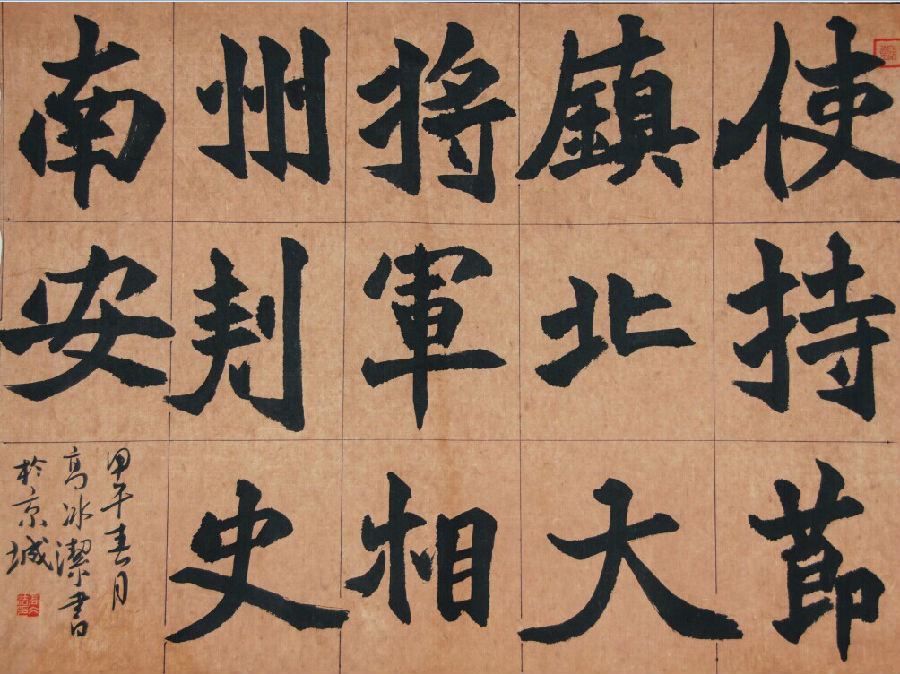 使持節
鎮北大
將軍相
州刺史
南安
甲午春月
高冰潔書
於京城